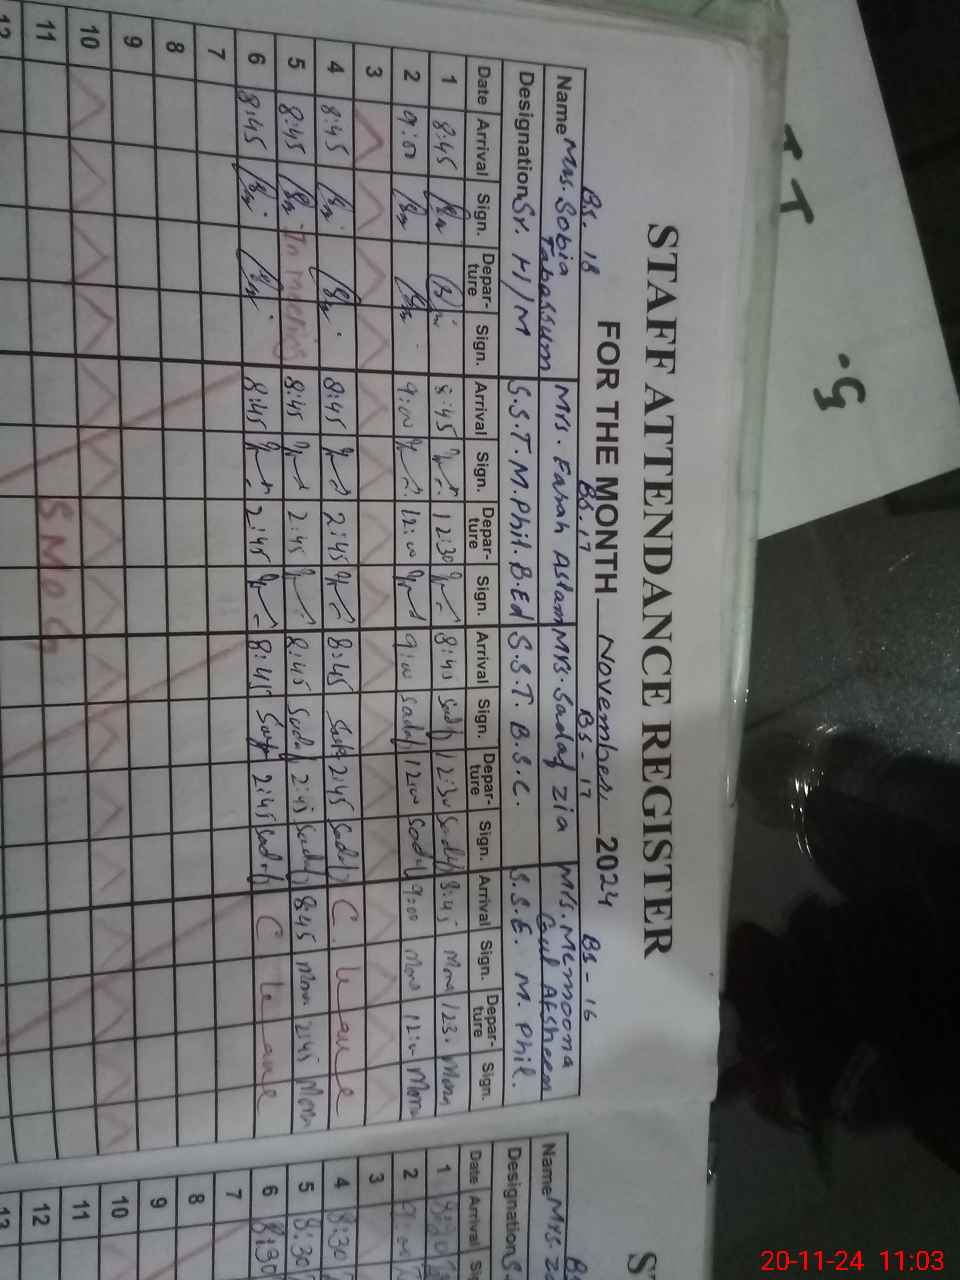 STAFF ATTENDANCE REGISTER
FOR THE MONTH November 2024
BS. 18 BS. 17 BS-17 BS-16
Name Mrs. Sobia Tabassum Mrs. Farah Aslam Mrs. Sadaf zia Mrs. Memoona Gul Aksheem
Designation Sr. H/M S.S.T. M.Phil. B.Ed S.S.T. B.S.C. S.S.E. M. Phil.
Date Arrival Sign. Depar-ture Sign. Arrival Sign. Depar-ture Sign. Arrival Sign. Depar-ture Sign. Arrival Sign. Depar-ture Sign.
1 8:45 8:45 12:30 8:45 Sadaf 12:30 Sadaf 8:45 Mona 1230 Mona
2 9:00 9:00 12:00 9:00 Sadaf 12:00 Sadaf 9:00 Mona 12:00 Mona
3
4 8:45 8:45 2:45 8:45 Sadaf 2:45 Sadaf C. leave
5 8:45 In meeting 8:45 2:45 8:45 Sadaf 2:45 Sadaf 8:45 Mona 2:45 Mona
6 8:45 8:45 2:45 8:45 Sadaf 2:45 Sadaf C leave
7
8
9
10
11 SMOG
12
Name Mrs.
Designation S.
Date Arrival
1
2 9:00
3
4 8:30
5 8:30
6 8:30
7
8
9
10
11
12
13
20-11-24 11:03